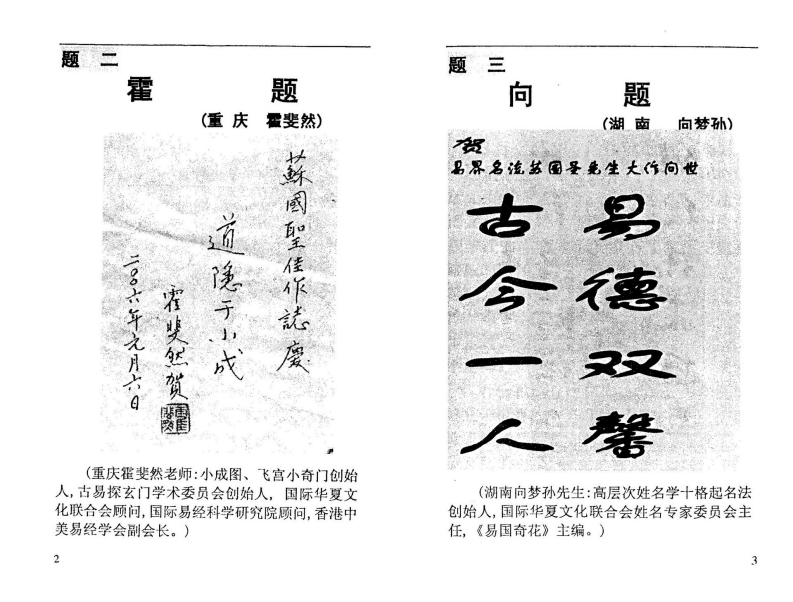 题 二
霍 题
(重 庆 霍斐然)
蘇國聖佳作誌慶
道隱于小成
霍斐然賀
二00六年元月六日
(重庆霍斐然老师:小成图、飞宫小奇门创始
人,古易探玄门学术委员会创始人, 国际华夏文
化联合会顾问,国际易经科学研究院顾问,香港中
美易经学会副会长。)
2
题 三
向 题
(湖 南 向梦孙)
贺
易界名流苏国圣先生大作问世
易德双馨
古今一人
(湖南向梦孙先生:高层次姓名学十格起名法
创始人,国际华夏文化联合会姓名专家委员会主
任,《易国奇花》主编。)
3